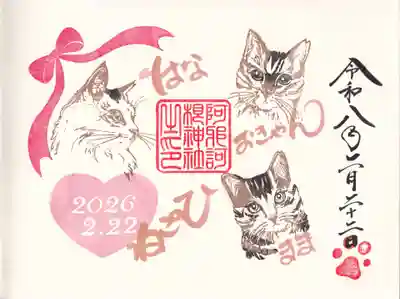 令和八年二月二十二日
はな
おきゃん
まま
阿邪訶
根神社
之印
2026
2.22
ねこのひ